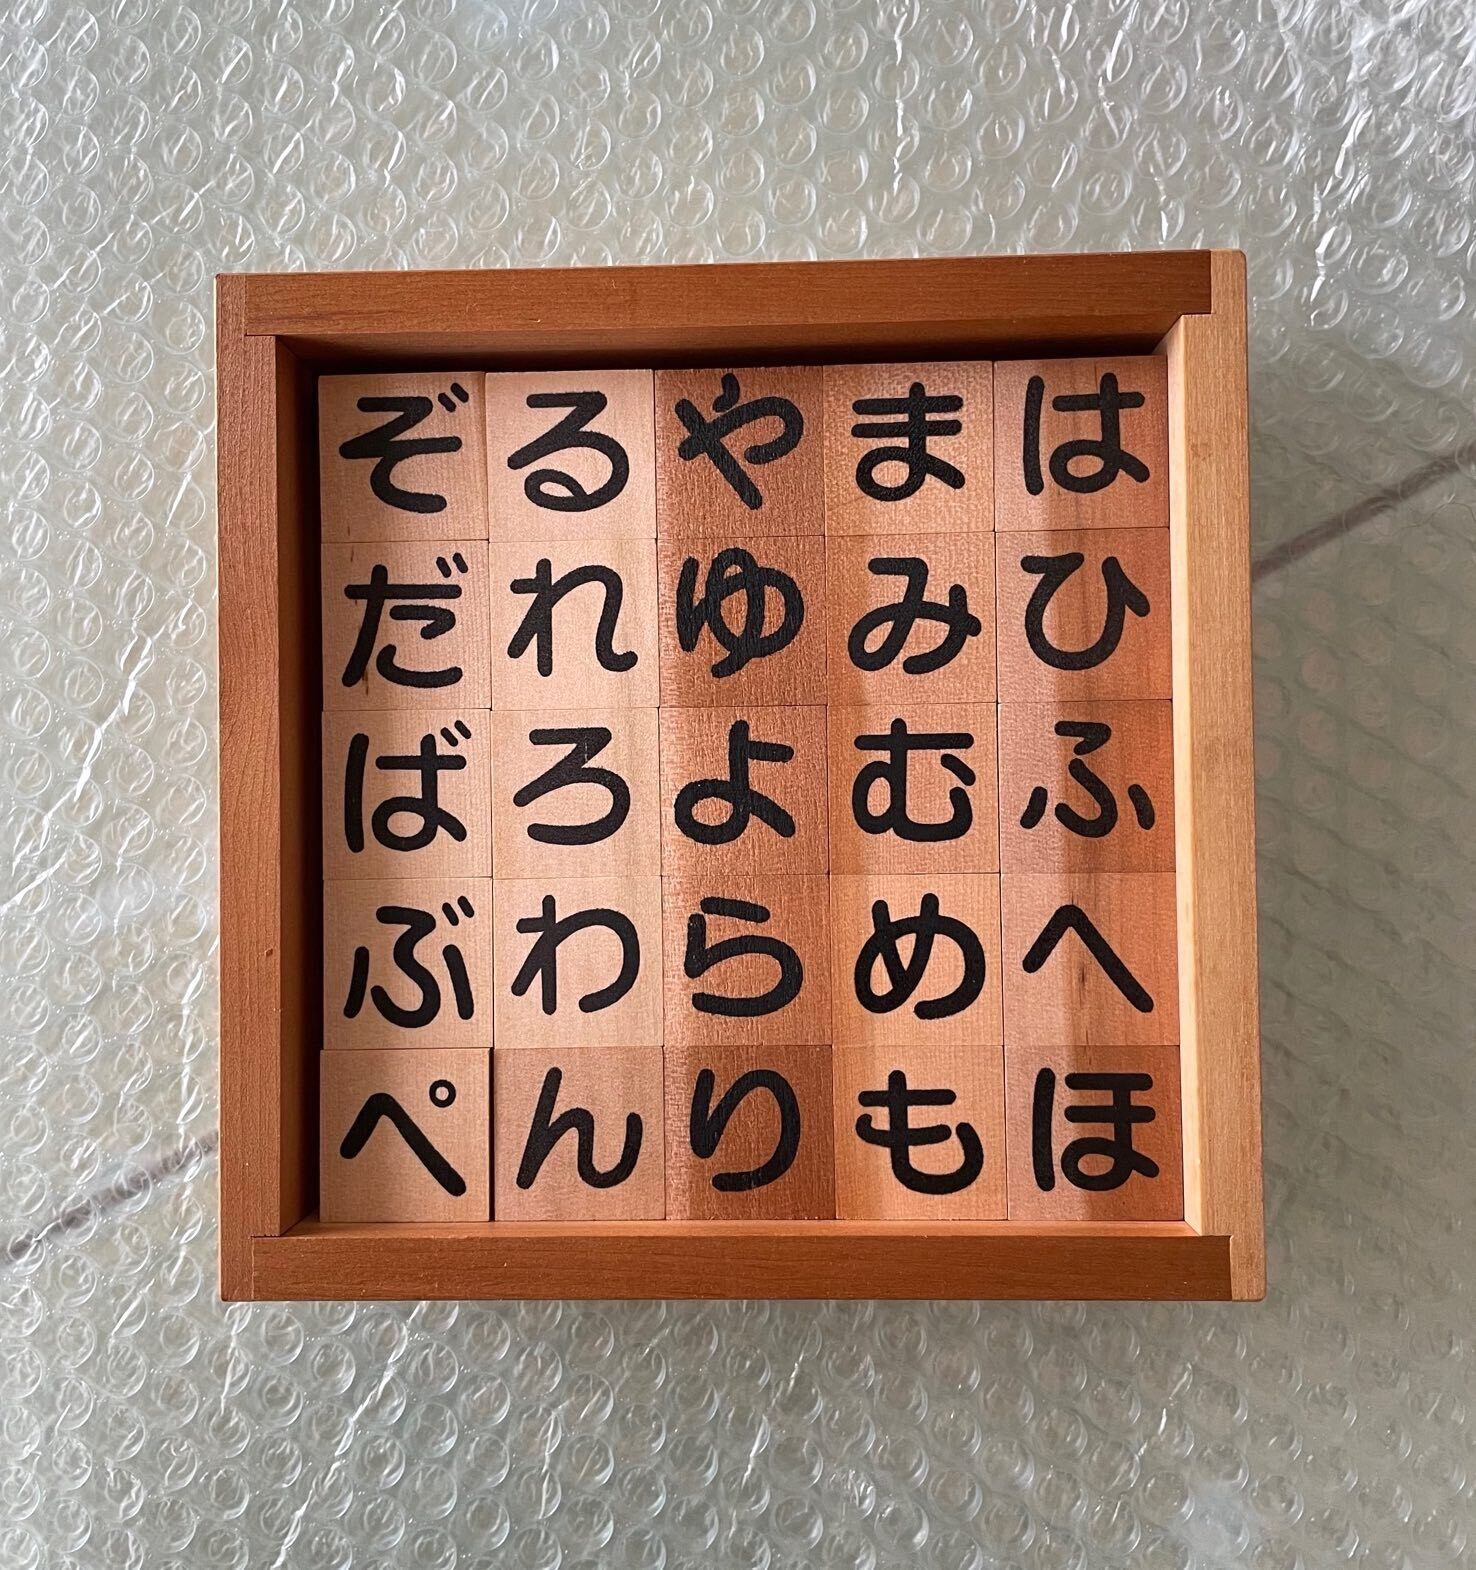 はひふへほ
まみむめも
やゆよらり
るれろわん
ぞだばぶぺ